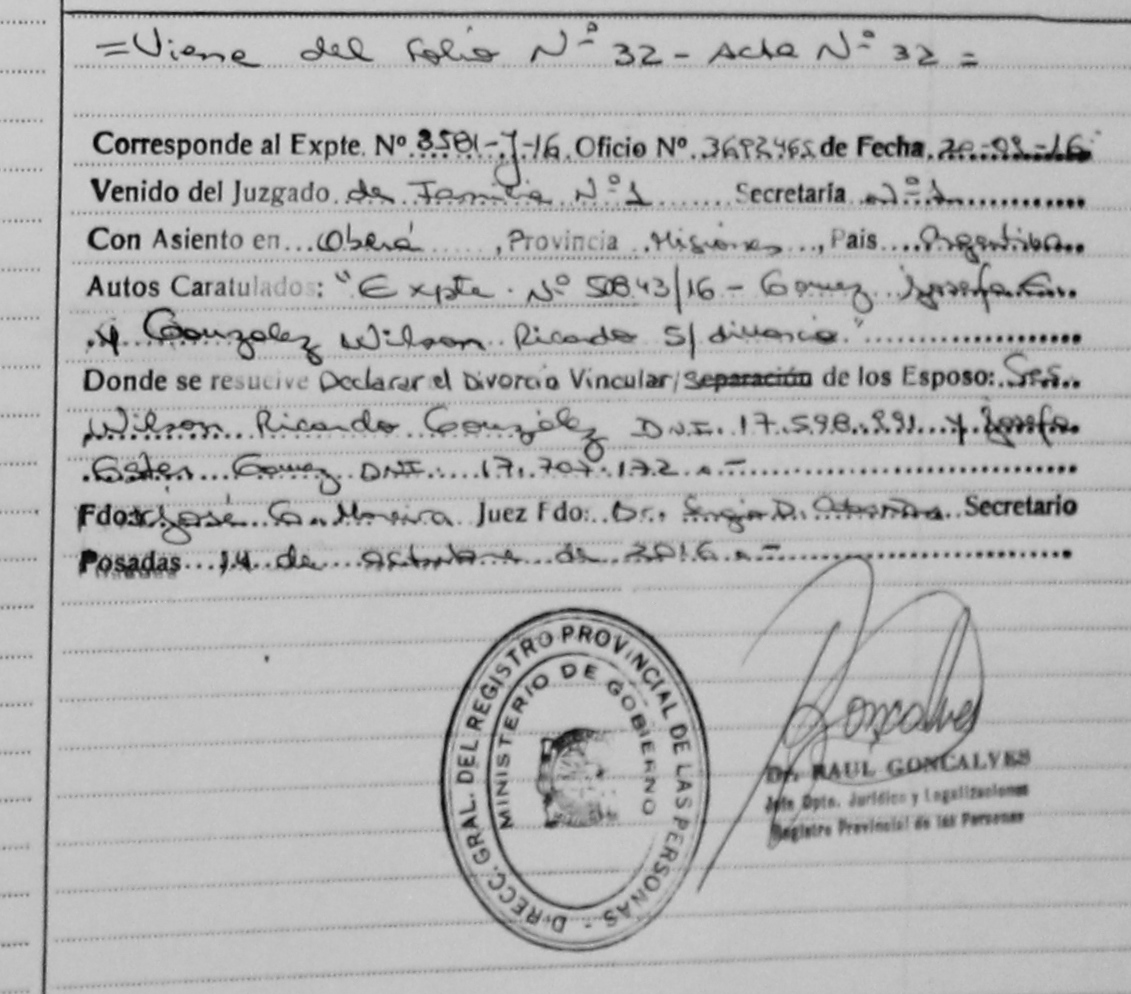 =Viene del Folio Nº 32 - Acta Nº 32 =
Corresponde al Expte. Nº 3581-J-16 Oficio Nº de Fecha
Venido del Juzgado de Familia Nº 1 Secretaría Nº 1
Con Asiento en Oberá, Provincia Misiones, Pais Argentina
Autos Caratulados: "Expte. Nº 50843/16 - Gomez Josefa E.
y Gonzalez Wilson Ricardo S/ divorcio"
Donde se resuelve Declarar el Divorcio Vincular/Separación de los Esposo: Sres.
Wilson Ricardo González D.N.I. 17.598.991 y Josefa
Ester Gomez DNI 17.707.172.-
Fdo: José G. Moreira Juez Fdo: Dr. Sergio D. Secretario
Posadas 14 de octubre de 2016.-
DIRECC. GRAL. DEL REGISTRO PROVINCIAL DE LAS PERSONAS -
MINISTERIO DE GOBIERNO
Goncalves
Dr. RAUL GONCALVES
Jefe Dpto. Jurídico y Legalizaciones
Registro Provincial de las Personas